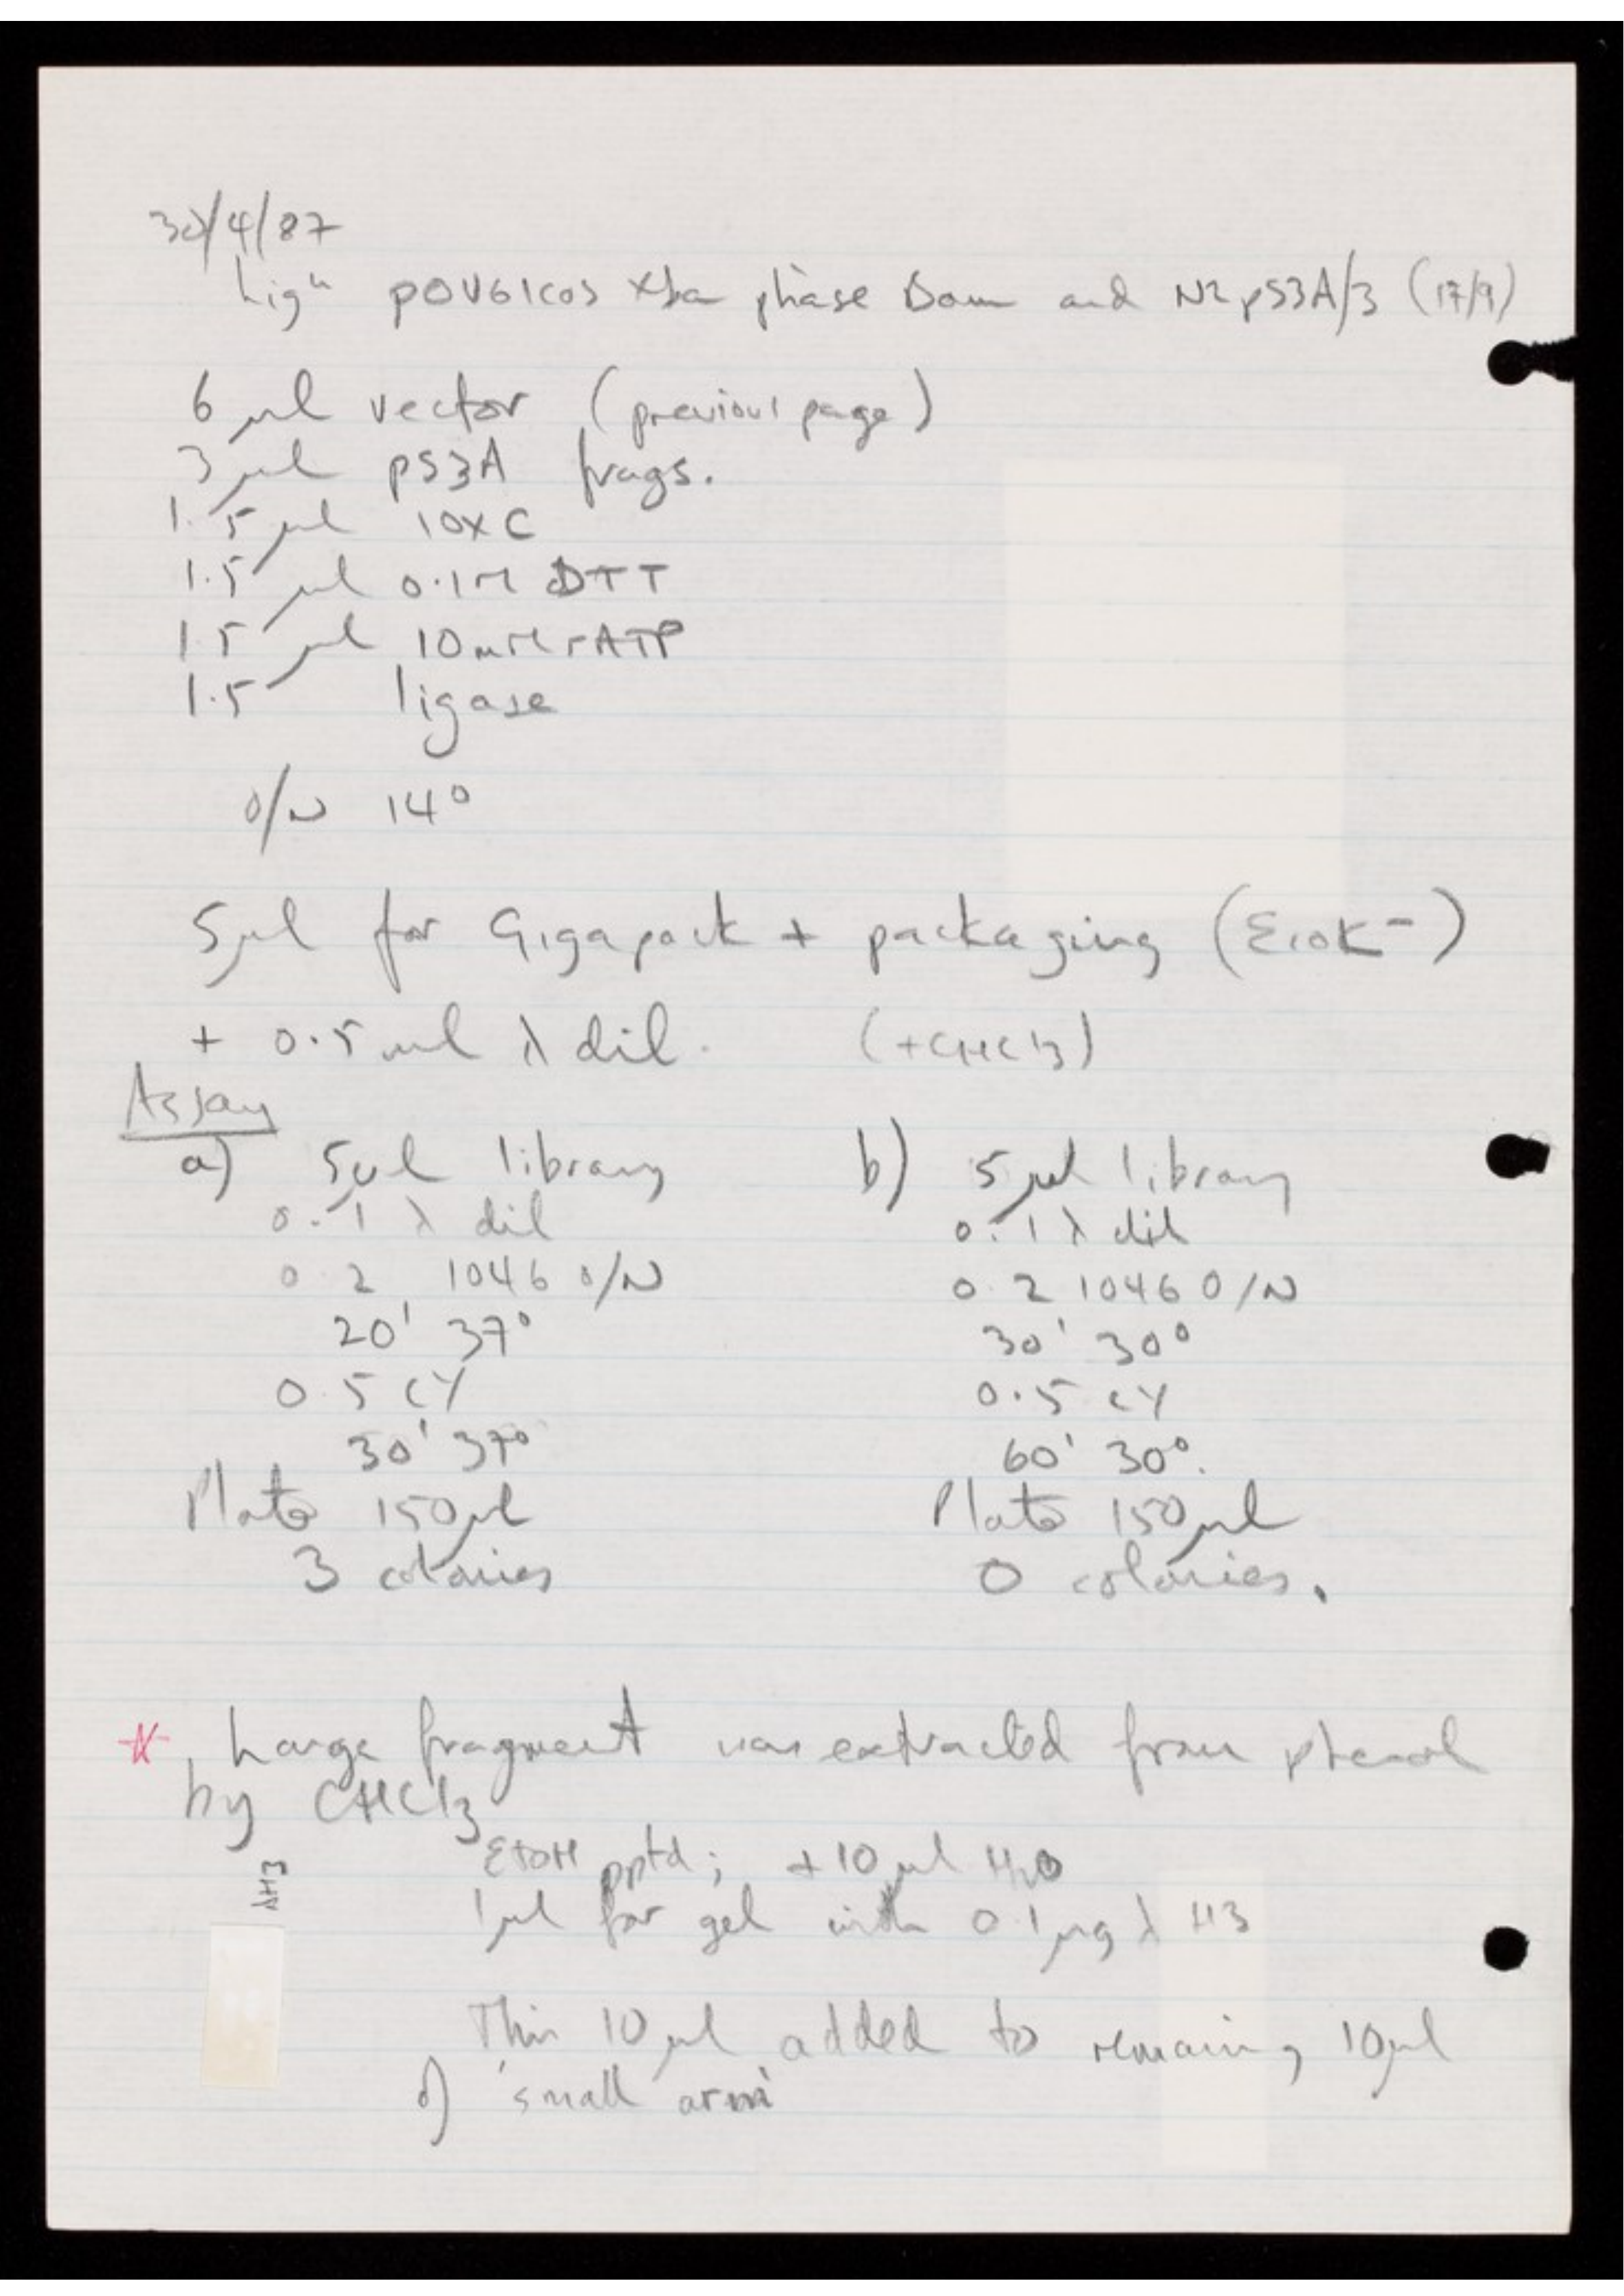 30/4/87
Lign pOV61cos Xba phase Bam and N2 pS3A/3 (17/9)
6 µl vector (previous page)
3 µl pS3A frags.
1.5 µl 10x C
1.5 µl 0.1M DTT
1.5 µl 10mM rATP
1.5 ligase
O/N 14°
5µl for Gigapack + packaging (EcoK-)
+ 0.5ml λ dil. (+CHCl3)
Assay
a) 5µl library
0.1 λ dil
0.2 1046 O/N
20' 37°
0.5 CY
30' 37°
Plate 150µl
3 colonies
b) 5µl library
0.1 λ dil
0.2 1046 O/N
30' 30°
0.5 CY
60' 30°.
Plate 150µl
0 colonies.
* Large fragment was extracted from phenol
by CHCl3
EtOH pptd; +10µl H2O
λH3
1µl for gel with 0.1µg λ H3
This 10µl added to remaining 10µl
of 'small arm'